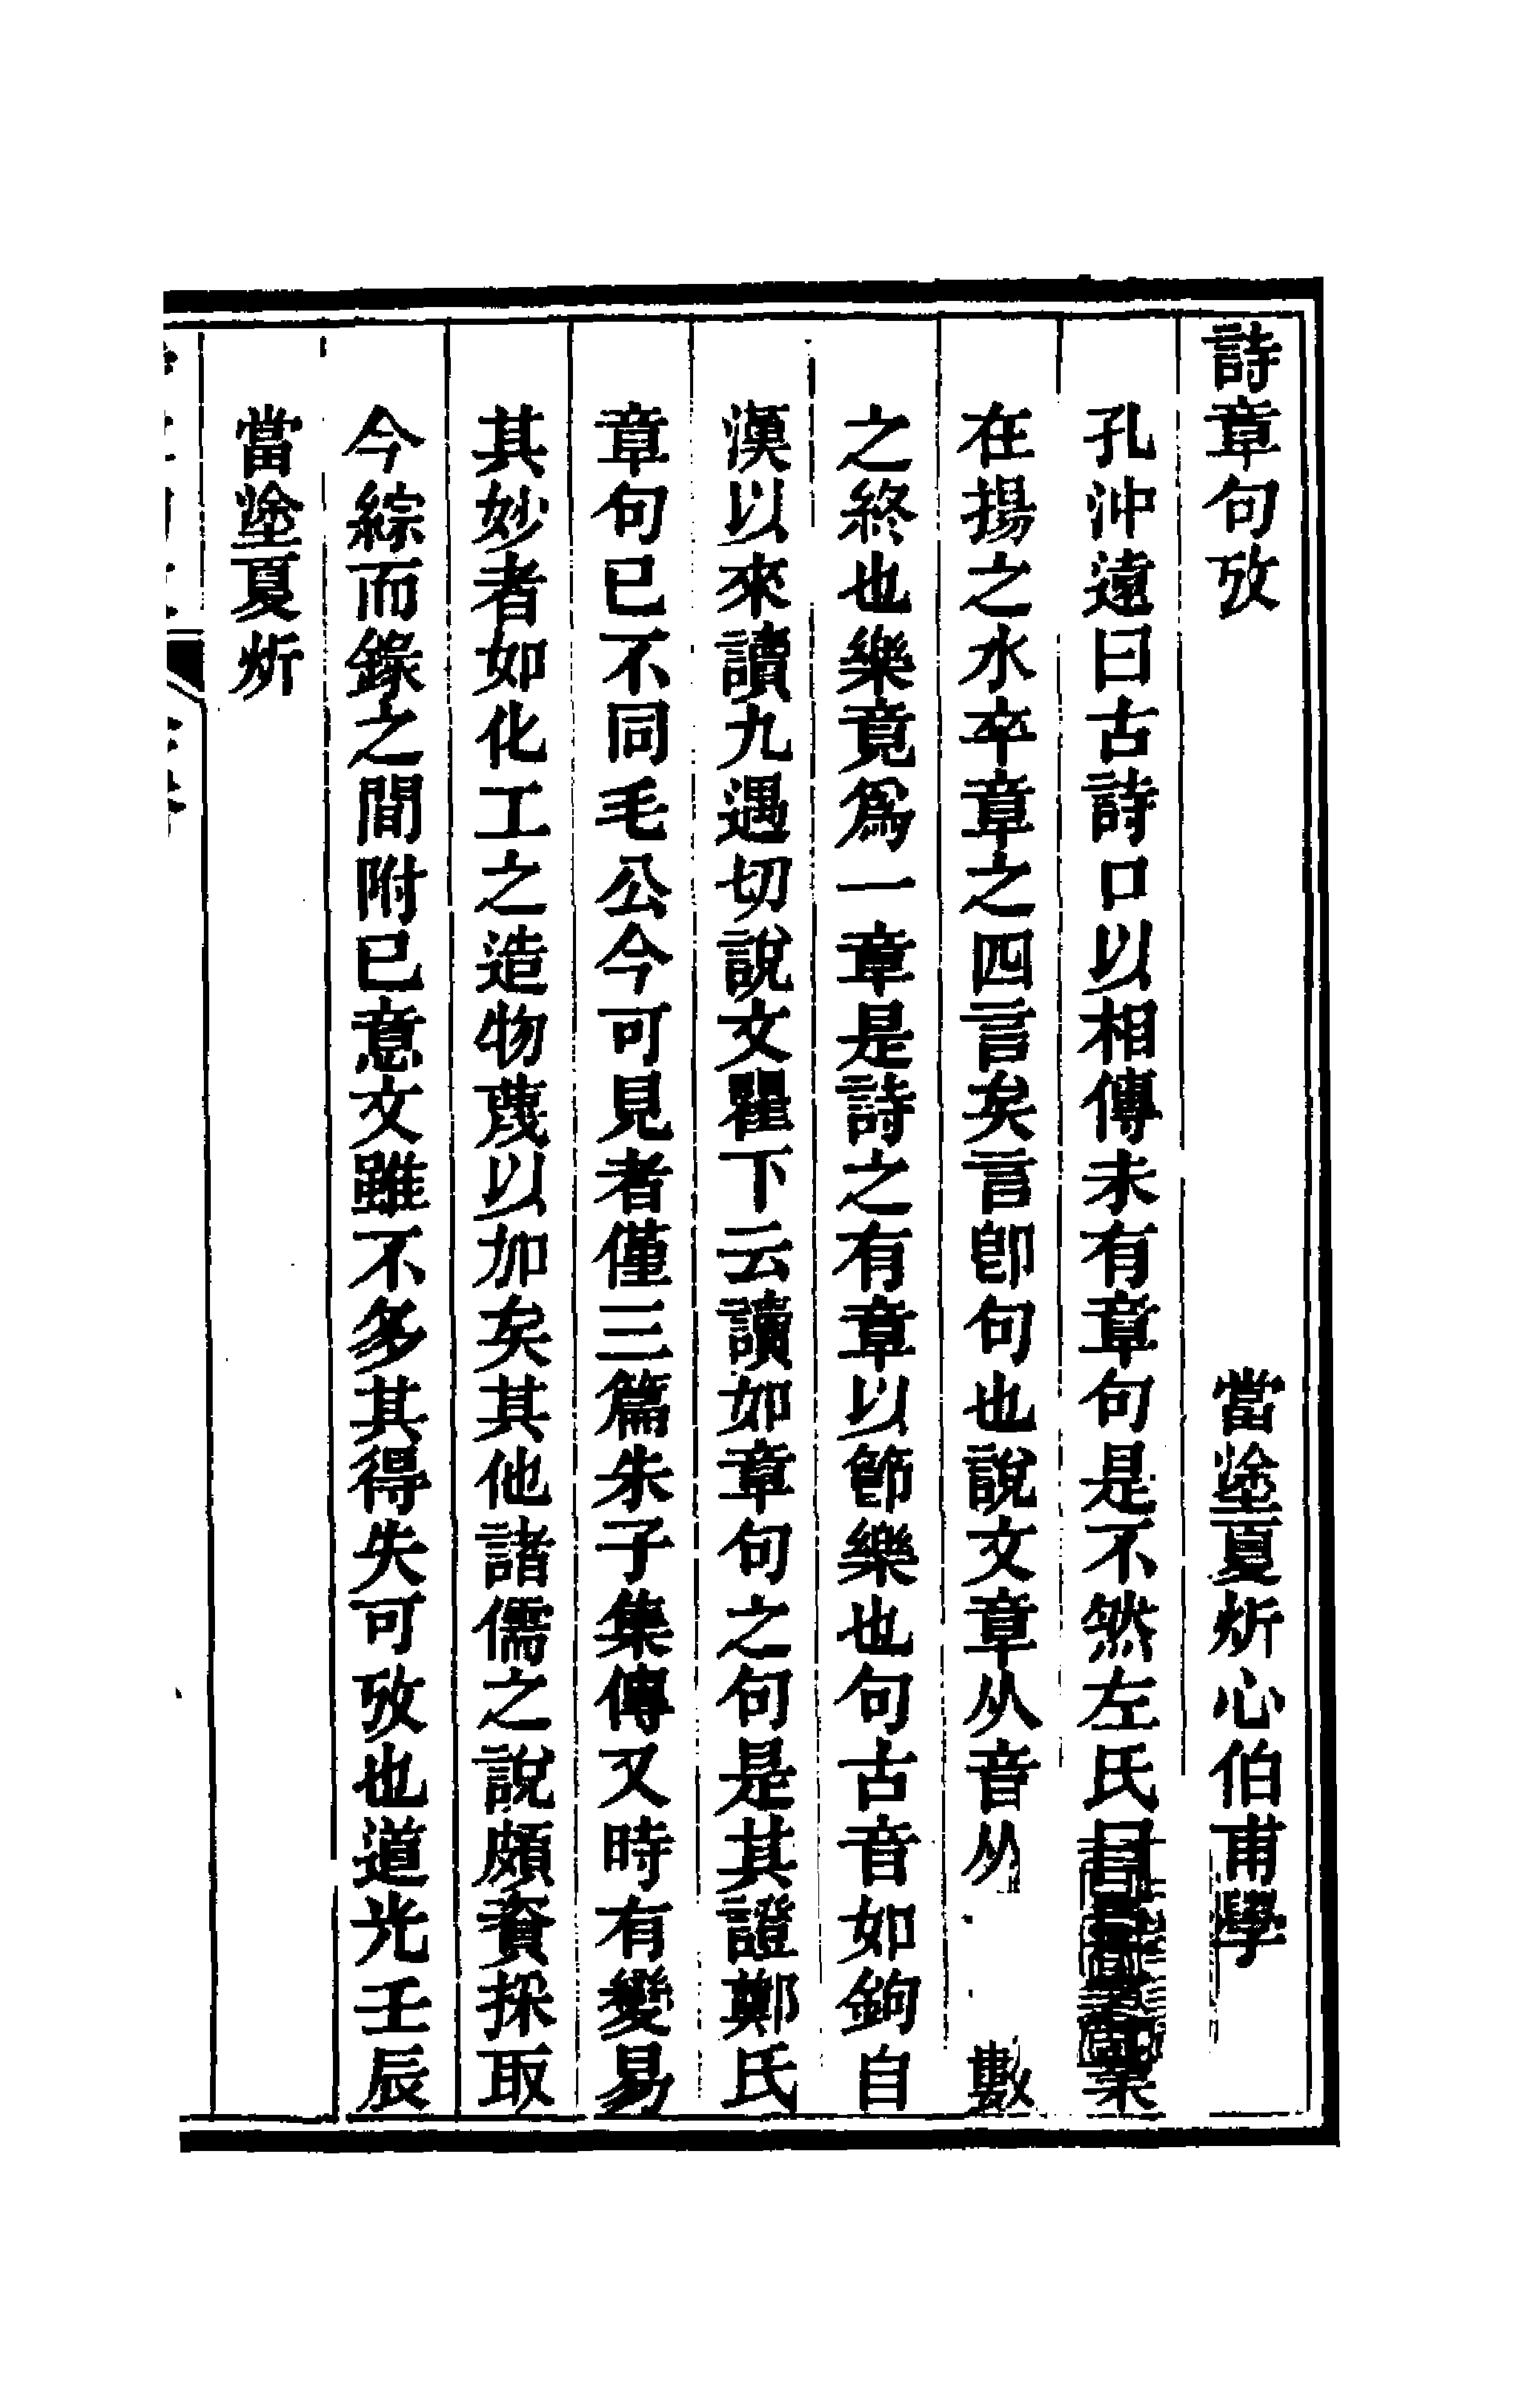 詩章句攷　當塗夏炘心伯甫學
孔沖遠曰古詩口以相傳未有章句是不然左氏曰
在揚之水卒章之四言矣言卽句也說文章从音从數
之終也樂竟爲一章是詩之有章以節樂也句古音如鉤自
漢以來讀九遇切說文瞿下云讀如章句之句是其證鄭氏
章句已不同毛公今可見者僅三篇朱子集傳又時有變易
其妙者如化工之造物蔑以加矣其他諸儒之說頗資採取
今綜而錄之間附己意文雖不多其得失可攷也道光壬辰
當塗夏炘